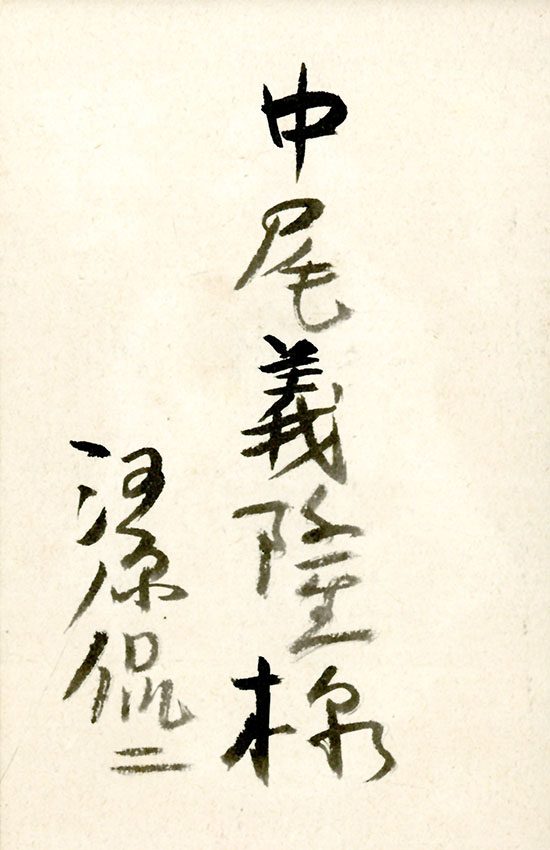 中尾義隆様
河原侃二